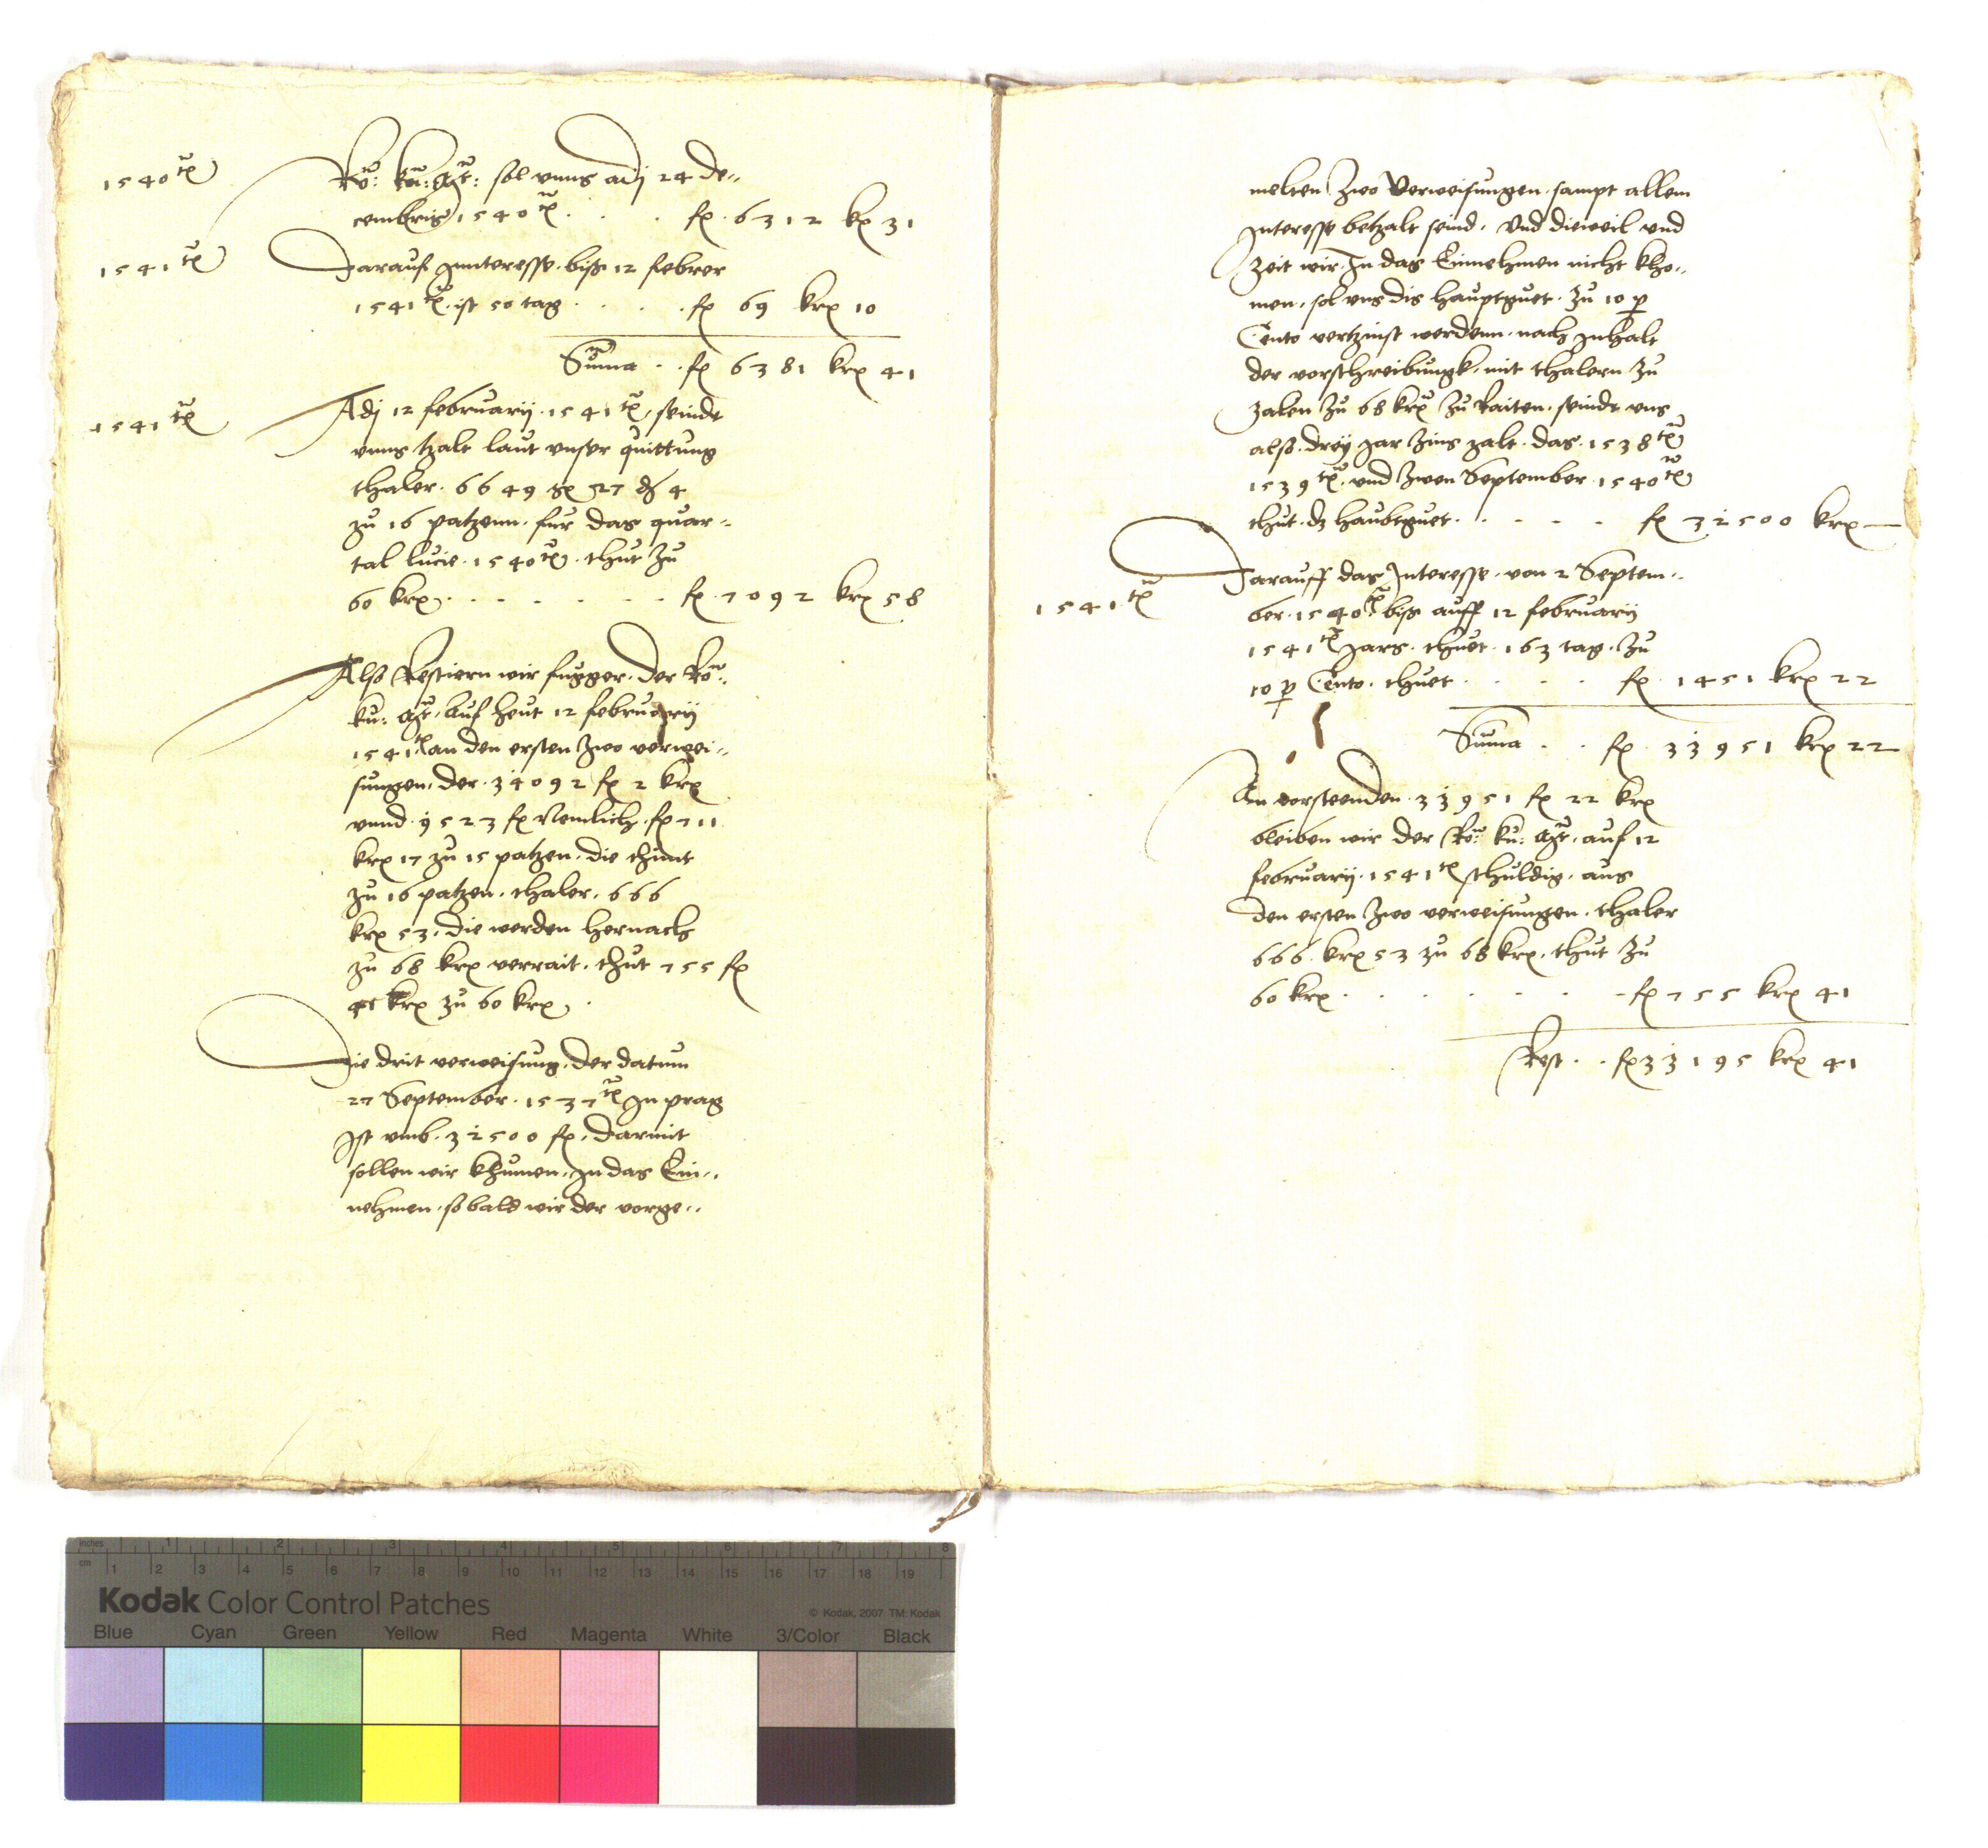 1540ten
Rö: Kü: Mt: sol vnns adj 24 de„
cembris 1540ten . . . fl . 6312 krx 31
1541ten
Darauf Innteresse . biss 12 febrer
1541ten . ist 50 tag . . . . fl 69 krx 10
Suma . . fl 6381 krx 41
1541ten
Adj 12 februarij . 1541ten, seindt
vnns tzalt laut vnser quittung
thaler . 6649 gr 27 d 4
zu 16 patzenn . fur das quar„
tal lucie . 1540ten . thut zu
60 krx . . . . . . . fl . 7092 krx 58
Also Restiern wir fugger . der Rö:
kü: Mt, auf heut 12 februarij
1541ten an den ersten zwo verwei„
sungen, der . 34092 fl 2 krx
vnnd . 9523 fl Nemlich . fl 711
krx 17 zu 15 patzen . die thunt
zu 16 patzen . thaler . 666
krx 53, die werden hernach
zu 68 krx verrait . thut 755 fl
41 krx zu 60 krx .
Die drit verweisung, der datum
27 September . 1537ten In prag
Ist vmb . 32500 fl, darmit
sollen wir khumen, in das Ein„
nehmen, so bald wir der vorge„
melten zwo Verweisungen, sampt allem
Interesse betzalt seind . Vnd dieweil vnd
zeit wir In das Einnehmen nicht kho„
men, sol vns dis hauptguet . zu 10 p
Cento vertzinst werdenn . nach Inhalt
der vorschreibungk, mit thalern zu
zalen zu 68 krx zu Raiten, seindt vns
also . drey Jar zins zalt . das . 1538ten
1539ten . vnd zwen September 1540ten
thut . dz haubtguet . . . . . fl 32500 krx —
Darauff das Interesse . von 2 Septem„
1541ten
ber . 1540ten biss auff 12 februarij
1541ten Jars . thuet . 163 tag . zu
10 p Cento . thuet . . . . fl . 1451 krx 22
Suma . . fl . 33951 krx 22
An vorsteenden . 33951 fl 22 krx
bleiben wir der Rö: kü: Mt, auf 12
februarij . 1541ten schuldig, aus
den ersten zwo verweisungen . thaler
666 . krx 53 zu 68 krx, thut zu
60 krx . . . . . . . fl 755 krx 41
Rest . . fl 33195 krx 41
inches 1 2 3 4 5 6 7 8
cm 1 2 3 4 5 6 7 8 9 10 11 12 13 14 15 16 17 18 19
Kodak Color Control Patches
© Kodak, 2007 TM: Kodak
Blue Cyan Green Yellow Red Magenta White 3/Color Black